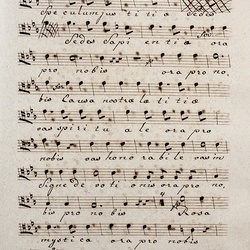 Speculum jus ti ti a Sedes
Sedes Sapi en ti a ora
pro nobis ora pro no,
bis Causa nostra læ ti tiæ
vas spiri tu a le ora pro
nobis vas hono ra bile vas in
signe de voti onis ora pro no,
bis pro no bis Rosa
mystica ora pro nobis